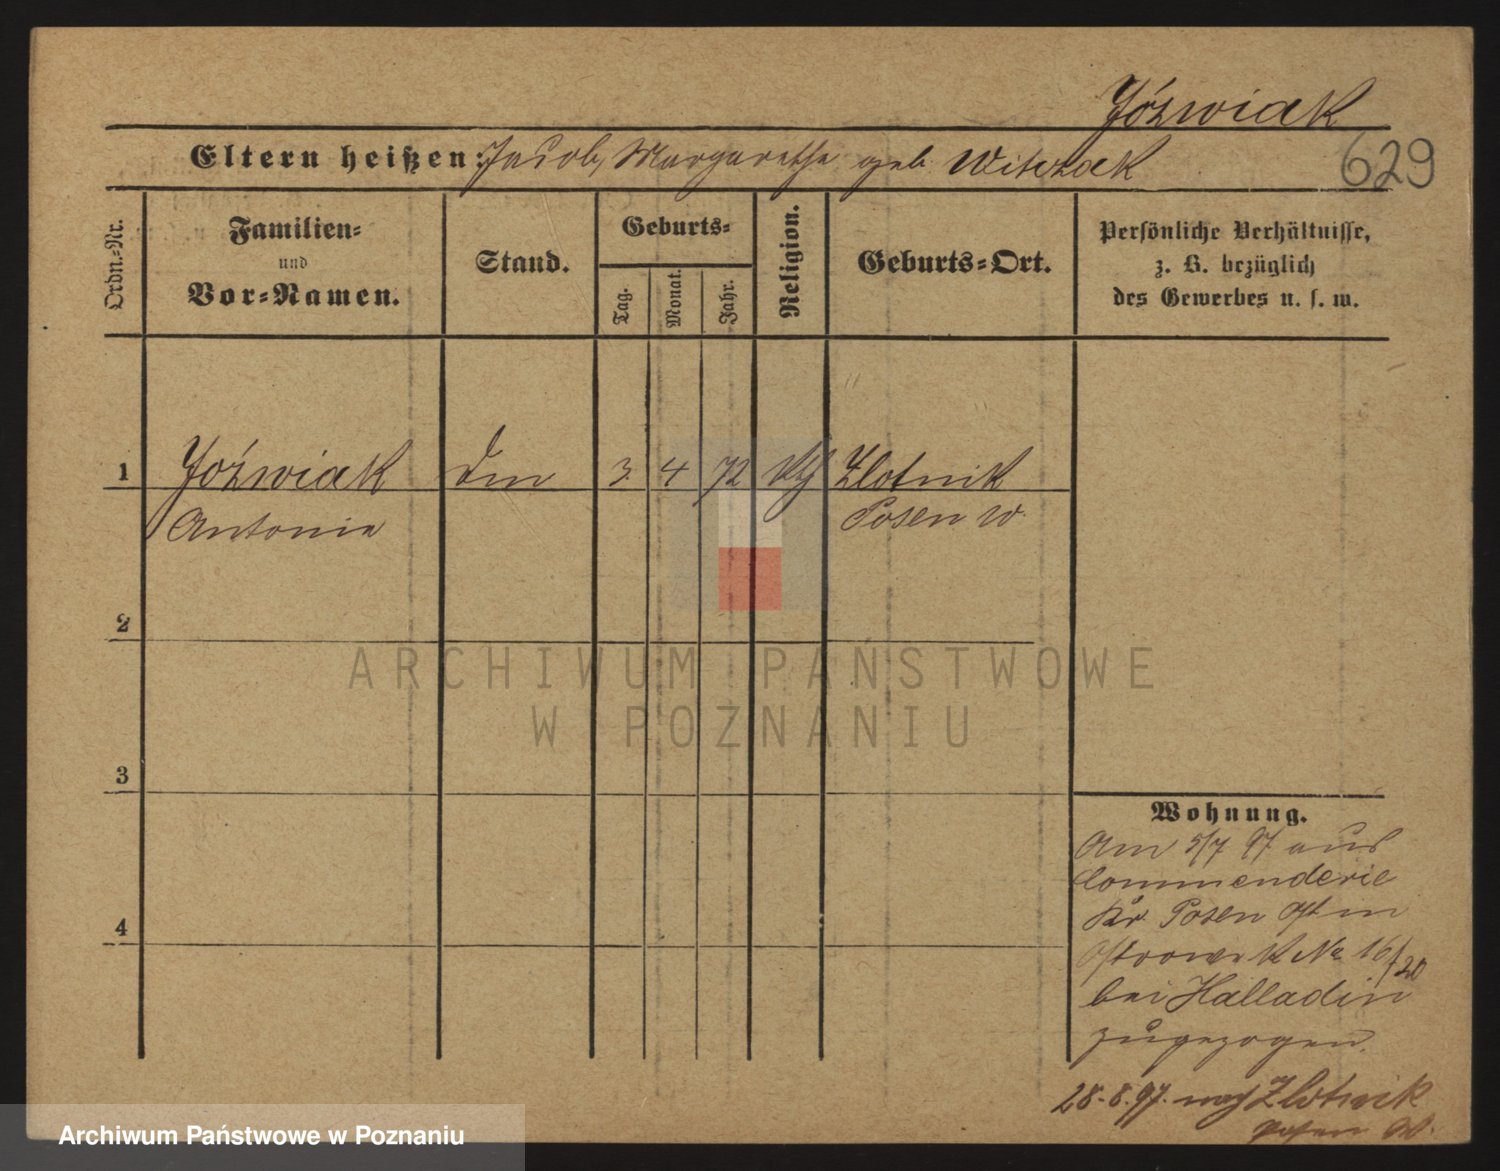 Jóźwiak
Eltern heißen: Jacob, Margarethe geb. Witczak
629
Ordn.-Nr.
Familien-
und
Vor-Namen.
Stand.
Geburts-
Tag.
Monat.
Jahr.
Religion.
Geburts-Ort.
Persönliche Verhältnisse,
z. B. bezüglich
des Gewerbes u. s. w.
1 Jóźwiak 3 4 72 Zlotnik
Antonie Posen W.
2
ARCHIWUM PAŃSTWOWE
W POZNANIU
3
4
Wohnung.
Am 5/7 97 aus
Commenderie
Kr. Posen Ost in
Ostrowek No 16/20
bei Halladin
zugezogen.
28.8.97. nach Zlotnik
Posen W.
Archiwum Państwowe w Poznaniu